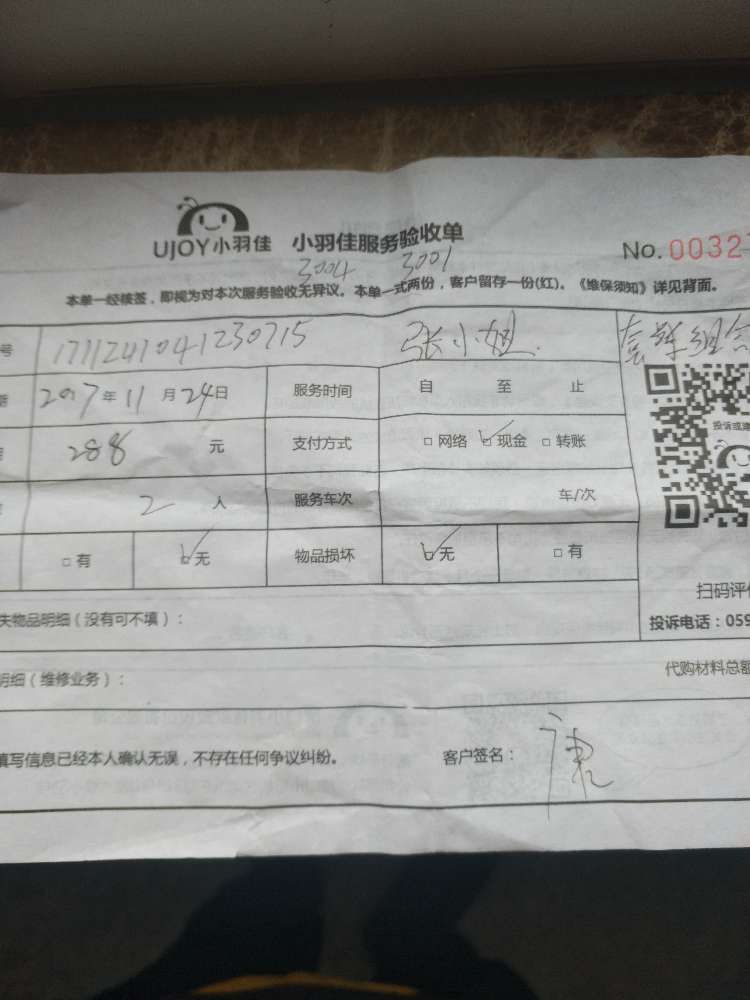 UJOY小羽佳 小羽佳服务验收单
No. 00327
3004 3001
本单一经核签，即视为对本次服务验收无异议。本单一式两份，客户留存一份(红)。《维保须知》详见背面。
号 1711241041230715 张小姐 套餐组合
2017年11月24日 服务时间 自 至 止
288 元 支付方式 □网络 ☑现金 □转账
投诉或建
2 人 服务车次 车/次
□有 ☑无 物品损坏 ☑无 □有
扫码评价
失物品明细（没有可不填）：
投诉电话：059
明细（维修业务）：
代购材料总额
填写信息已经本人确认无误，不存在任何争议纠纷。 客户签名：